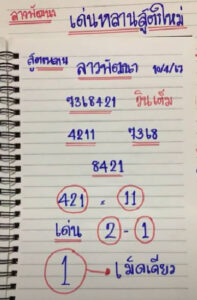 ลาวพัฒนา เด่นหลานสูตรใหม่
สูตรหลาน ลาวพัฒนา 10/4/67
7368421 วินเต็ม
4211 7368
8421
421 . 11
เด่น 2 - 1
1 เม็ดเดียว